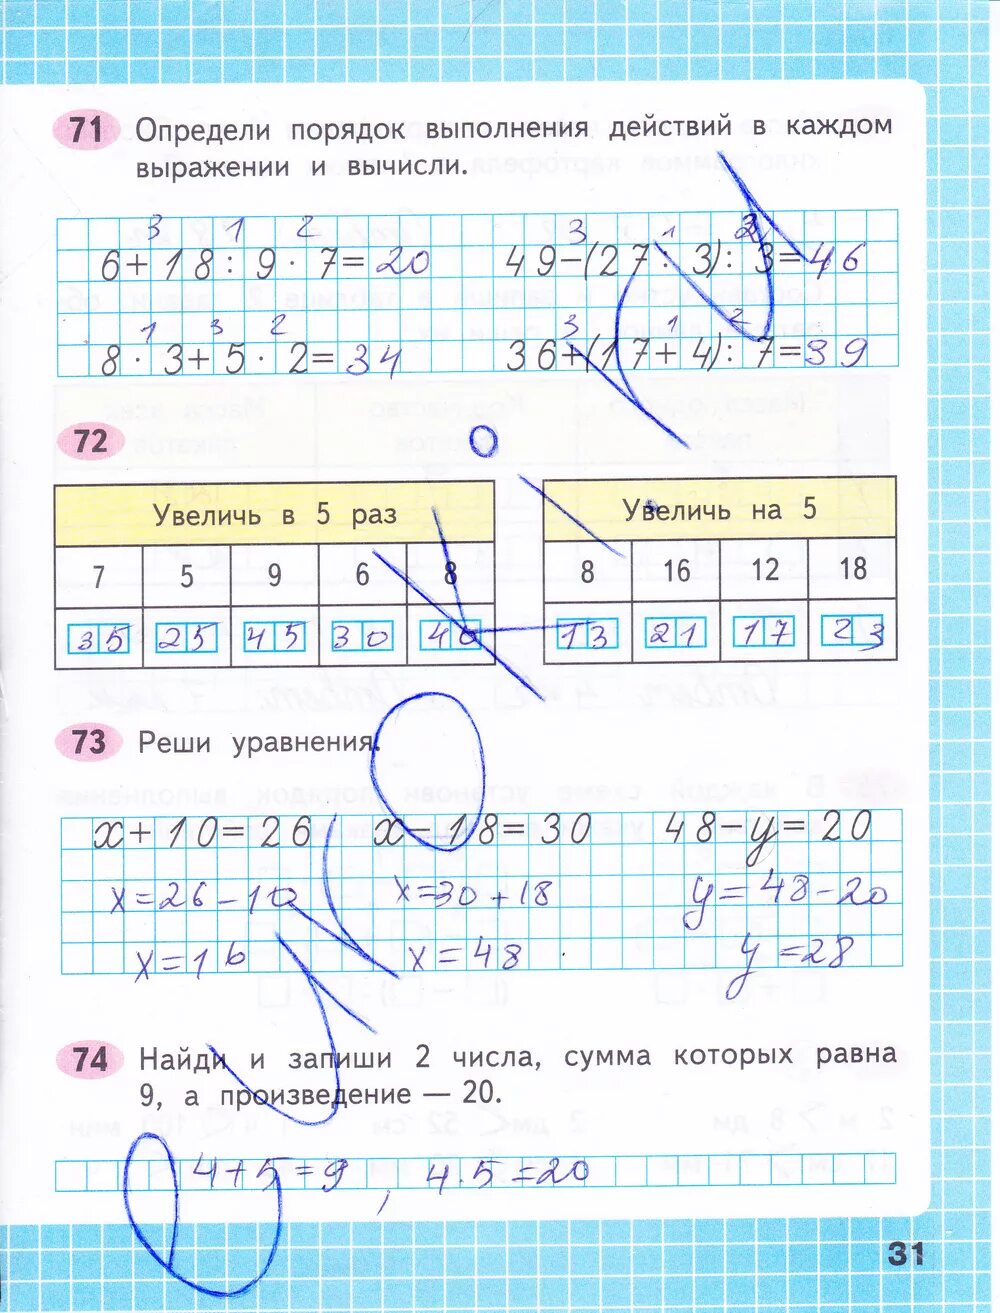 71 Определи порядок выполнения действий в каждом
выражении и вычисли.
3 1 2
6+18:9·7=20
3 1 2
49-(27:3):3=46
1 3 2
8·3+5·2=34
3 1 2
36+(17+4):7=39
72
Увеличь в 5 раз
7 5 9 6 8
35 25 45 30 40
Увеличь на 5
8 16 12 18
13 21 17 23
73 Реши уравнения.
x+10=26 x-18=30 48-y=20
x=26-10 x=30+18 y=48-20
x=16 x=48 y=28
74 Найди и запиши 2 числа, сумма которых равна
9, а произведение — 20.
4+5=9, 4·5=20
31